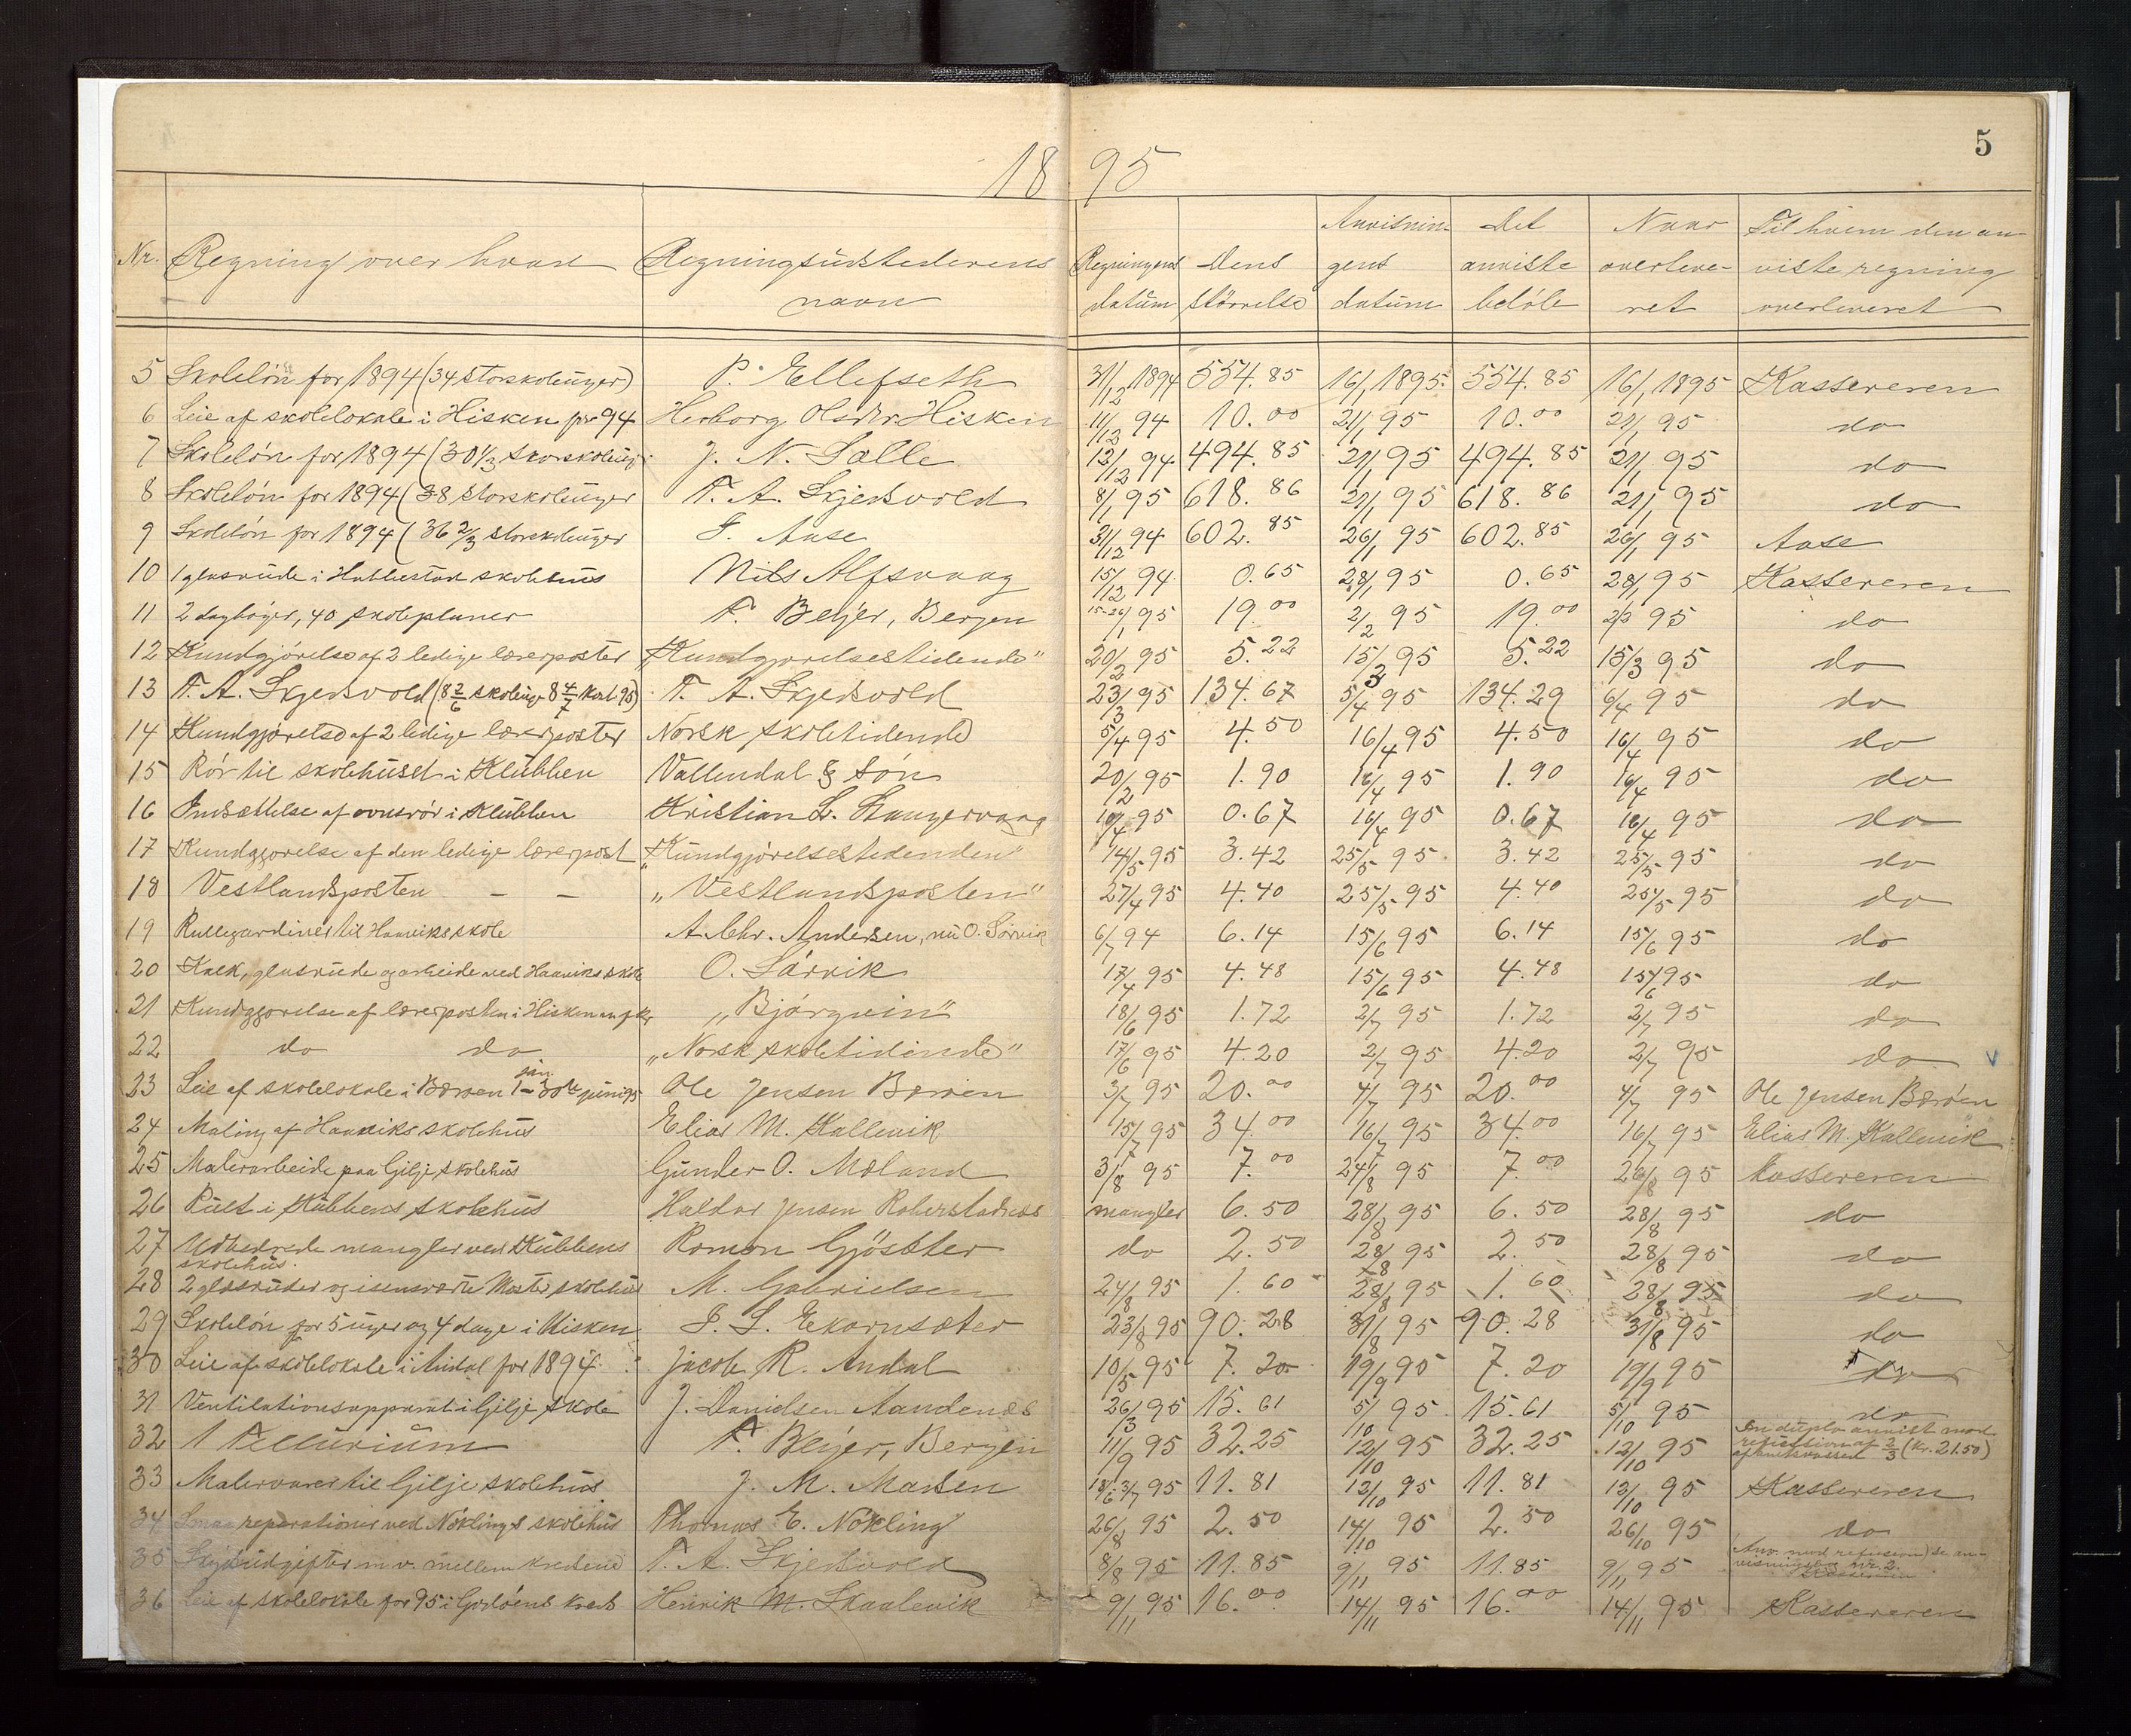 5
18 95
Nr. Regning over hvad Regningsudstederens navn Regningens datum Dens størrelse Anvisningens datum Det anviste beløb Naar overleveret Til hvem den anviste regning overleveret
5 Skoleløn for 1894 (34 storskoleuger) P. Ellefseth 31/12 1894 554.85 16/1 1895. 554.85 16/1 1895 Kassereren
6 Leie af skolelokale i Hisken pro 94 Herborg Olsdtr Hisken 11/12 94 10.00 21/1 95 10.00 21/1 95 do
7 Skoleløn for 1894 (30 1/3 storskoleug. J. N. Salle 12/12 94 494.85 21/1 95 494.85 21/1 95 do
8 Skoleløn for 1894 (38 storskoleuger T. A. Skjedsvold 8/1 95 618.86 21/1 95 618.86 21/1 95 do
9 Skoleløn for 1894 (36 2/3 storskoleuger J. Aase 31/12 94 602.85 26/1 95 602.85 26/1 95 Aase
10 1 glasrude i Hubbestad skolehus Nils Alfsvaag 15/12 94 0.65 28/1 95 0.65 28/1 95 Kassereren
11 2 dagbøger, 40 skoleplaner F. Beyer, Bergen 15-26/1 95 19.00 2/2 95 19.00 2/2 95 do
12 Kundgjørelse af 2 ledige lærerposter "Kundgjørelsestidende" 20/2 95 5.22 15/3 95 5.22 15/3 95 do
13 T. A. Skjedsvold (8 2/6 skoleug. 8 4/7 kort 95) T. A. Skjedsvold 23/3 95 134.67 5/4 95 134.29 6/4 95 do
14 Kundgjørelse af 2 ledige lærerposter Norsk skoletidende 5/4 95 4.50 16/4 95 4.50 16/4 95 do
15 Rør til skolehuset i Klubben Vallendal & søn 20/2 95 1.90 16/4 95 1.90 16/4 95 do
16 Indsættelse af ovnsrør i Klubben Kristian L. Stangervaag 10/4 95 0.67 16/4 95 0.67 16/4 95 do
17 Kundgjørelse af den ledige lærerpost "Kundgjørelsestidenden" 14/5 95 3.42 25/5 95 3.42 25/5 95 do
18 Vestlandsposten – – "Vestlandsposten" 27/4 95 4.40 25/5 95 4.40 25/5 95 do
19 Rullegardiner til Haaviks skole A. Chr. Andersen, nu O. Sørvik 6/7 94 6.14 15/6 95 6.14 15/6 95 do
20 Kalk, glasrude og arbeide ved Haaviks skole O. Sørvik 17/4 95 4.48 15/6 95 4.48 15/6 95 do
21 Kundgjørelse af lærerposten i Hisken "Bjørgvin" 18/6 95 1.72 2/7 95 1.72 2/7 95 do
22 do do "Norsk skoletidende" 17/6 95 4.20 2/7 95 4.20 2/7 95 do
23 Leie af skolelokale i Børøen 1 jan – 30te juni 95 Ole Jensen Børøen 3/7 95 20.00 4/7 95 20.00 4/7 95 Ole Jensen Børøen
24 Maling af Haaviks skolehus Elias M. Kallevik 15/7 95 34.00 16/7 95 34.00 16/7 95 Elias M. Kallevik
25 Malerarbeide paa Gilje skolehus Gunder O. Moland 3/8 95 7.00 24/8 95 7.00 26/8 95 Kassereren
26 Pult i Klubbens skolehus Haldor Jensen mangler 6.50 28/8 95 6.50 28/8 95 do
27 Udbedrede mangler ved Klubbens skolehus. Roman Gjøsæter do 2.50 28/8 95 2.50 28/8 95 do
28 2 glasruder og isensværte Moster skolehus M. Gabrielsen 24/8 95 1.60 28/8 95 1.60 28/8 95 do
29 Skoleløn for 5 uger og 4 dage i Hisken J. L. Ekornsæter 23/8 95 90.28 31/8 95 90.28 31/8 95 do
30 Leie af skolelokale i Andal for 1894 Jacob R. Andal 10/5 95 7.20 19/9 95 7.20 19/9 95 do
31 Ventilationsapparat i Gilje skole J. Danielsen Aandenæs 26/3 95 15.61 5/10 95 15.61 5/10 95 do
32 1 Tellurium F. Beyer, Bergen 11/9 95 32.25 12/10 95 32.25 12/10 95 In duplo anvist mod refusion af 2/3 (Kr. 21.50) af amtskassen
33 Malervarer til Gilje skolehus J. M. Madsen 18/6-3/7 95 11.81 12/10 95 11.81 12/10 95 Kassereren
34 Smaa reparationer ved Nøklings skolehus Thomas E. Nøkling 26/8 95 2.50 14/10 95 2.50 26/10 95 do
35 Skydsudgifter m.v. mellem kredsene T. A. Skjedsvold 8/8 95 11.85 9/11 95 11.85 9/11 95 Anv. mod refusion, se anvisningsbog nr. 2. Kassereren
36 Leie af skolelokale for 95 i Goddøens kreds Henrik M. Skaalevik 9/11 95 16.00 14/11 95 16.00 14/11 95 Kassereren